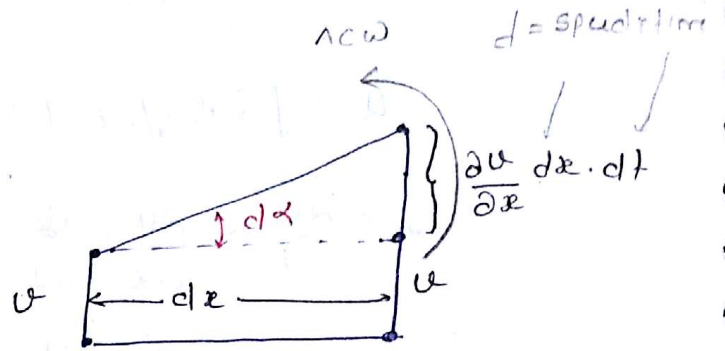 ACW
d = speed × time
∂v/∂x dx . dt
dα
v
dx
v